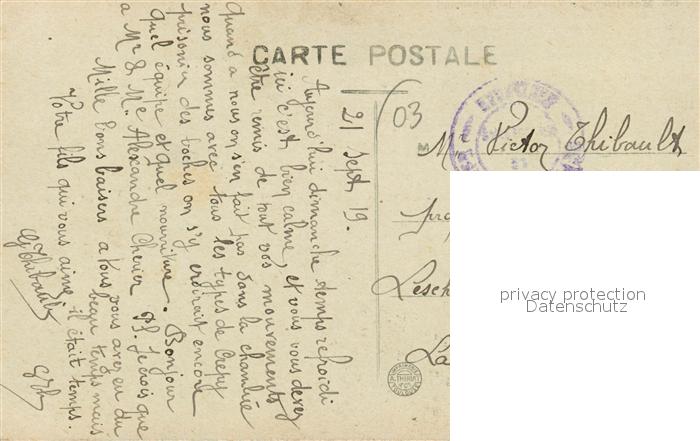 CARTE POSTALE
21 Sept 19.
Aujourd'hui dimanche temps refroidi
ici c'est bien calme, et vous vous devez
être remis de tout vos mouvements
quand a nous on s'en fait pas dans la chambrée
nous sommes avec tous les types de Crepy
prisonier des boches on s'y croirait encore
quel équipe et quel nourriture. Bonjour
a Mr & Me Alexandre Cherier
Je crois que
vous avez eu du
beau temps mais
il était temps.
Mille bons baisers a tous
Votre fils qui vous aime
G Thibault
03
M. Victor Thibault
Lesch
La
privacy protection
Datenschutz